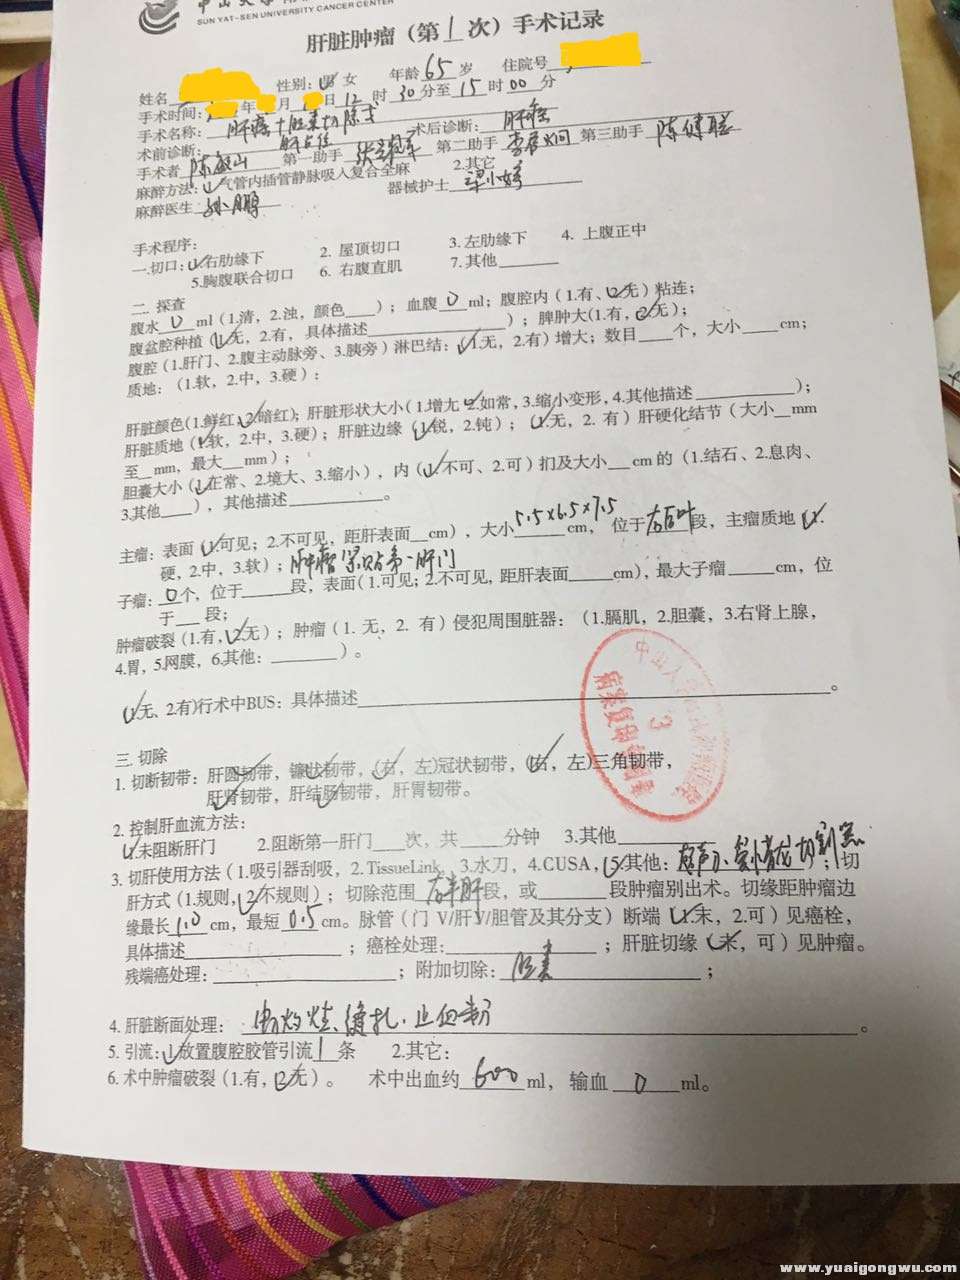 SUN YAT-SEN UNIVERSITY CANCER CENTER
肝脏肿瘤（第1次）手术记录
姓名 性别：男 女 年龄 65 岁 住院号
手术时间： 年 月 日 12 时 30 分至 15 时 00 分
手术名称： 肝癌+胆囊切除术
术前诊断： 肝占位 术后诊断： 肝癌
手术者 陈敏山 第一助手 第二助手 第三助手 陈健聪
麻醉方法：1.气管内插管静脉吸入复合全麻 2.其它
麻醉医生 孙鹏 器械护士 梁小婷
手术程序：
一.切口：1.右肋缘下 2. 屋顶切口 3.左肋缘下 4. 上腹正中
5.胸腹联合切口 6. 右腹直肌 7.其他
二. 探查
腹水 0 ml（1.清，2.浊，颜色 ）；血腹 0 ml；腹腔内（1.有、2.无）粘连；
腹盆腔种植（1.无，2.有，具体描述 ）；脾肿大(1.有，2.无)；
腹腔（1.肝门、2.腹主动脉旁、3.胰旁）淋巴结：（1.无，2.有）增大；数目 个，大小 cm；
质地：（1.软，2.中，3.硬）：
肝脏颜色(1.鲜红，2.暗红)；肝脏形状大小（1.增尢 2.如常，3.缩小变形，4.其他描述 ）；
肝脏质地（1.软，2.中，3.硬)；肝脏边缘（1.锐，2.钝）；（1.无，2. 有）肝硬化结节（大小 mm
至 mm，最大 mm）；
胆囊大小（1.在常、2.境大、3.缩小），内（1.不可、2.可）扪及大小 cm 的（1.结石、2.息肉、
3.其他 ），其他描述 。
主瘤：表面（1.可见；2.不可见，距肝表面 cm），大小 5.5×6.5×7.5 cm，位于 右后叶 段，主瘤质地（1.
硬，2.中，3.软）；肿瘤紧贴第一肝门
子瘤： 0 个，位于 段，表面（1.可见；2.不可见，距肝表面 cm），最大子瘤 cm，位
于 段；
肿瘤破裂（1.有，2.无）；肿瘤（1. 无、2. 有）侵犯周围脏器：（1.膈肌，2.胆囊，3.右肾上腺，
4.胃，5.网膜，6.其他： ）。
(1.无、2.有)行术中BUS：具体描述 。
三. 切除
1. 切断韧带：肝圆韧带，镰状韧带，（右，左）冠状韧带，（右，左)三角韧带，
肝肾韧带，肝结肠韧带，肝胃韧带。
2. 控制肝血流方法：
1.未阻断肝门 2.阻断第一肝门 次，共 分钟 3.其他
3. 切肝使用方法（1.吸引器刮吸，2.TissueLink，3.水刀，4.CUSA，5.其他： 超声刀、 ；切
肝方式（1.规则，2.不规则）；切除范围 右半肝 段，或 段肿瘤别出术。切缘距肿瘤边
缘最长 1.0 cm，最短 0.5 cm。脉管（门 V/肝 V/胆管及其分支）断端（1.未，2.可）见癌栓，
具体描述 ；癌栓处理： ；肝脏切缘（未，可）见肿瘤。
残端癌处理： ；附加切除： 胆囊 ；
4. 肝脏断面处理： 电灼烧、缝扎、止血粉 。
5. 引流：1.放置腹腔胶管引流 1 条 2.其它：
6. 术中肿瘤破裂（1.有，2.无）。 术中出血约 600 ml，输血 0 ml。
www.yuaigongwu.com